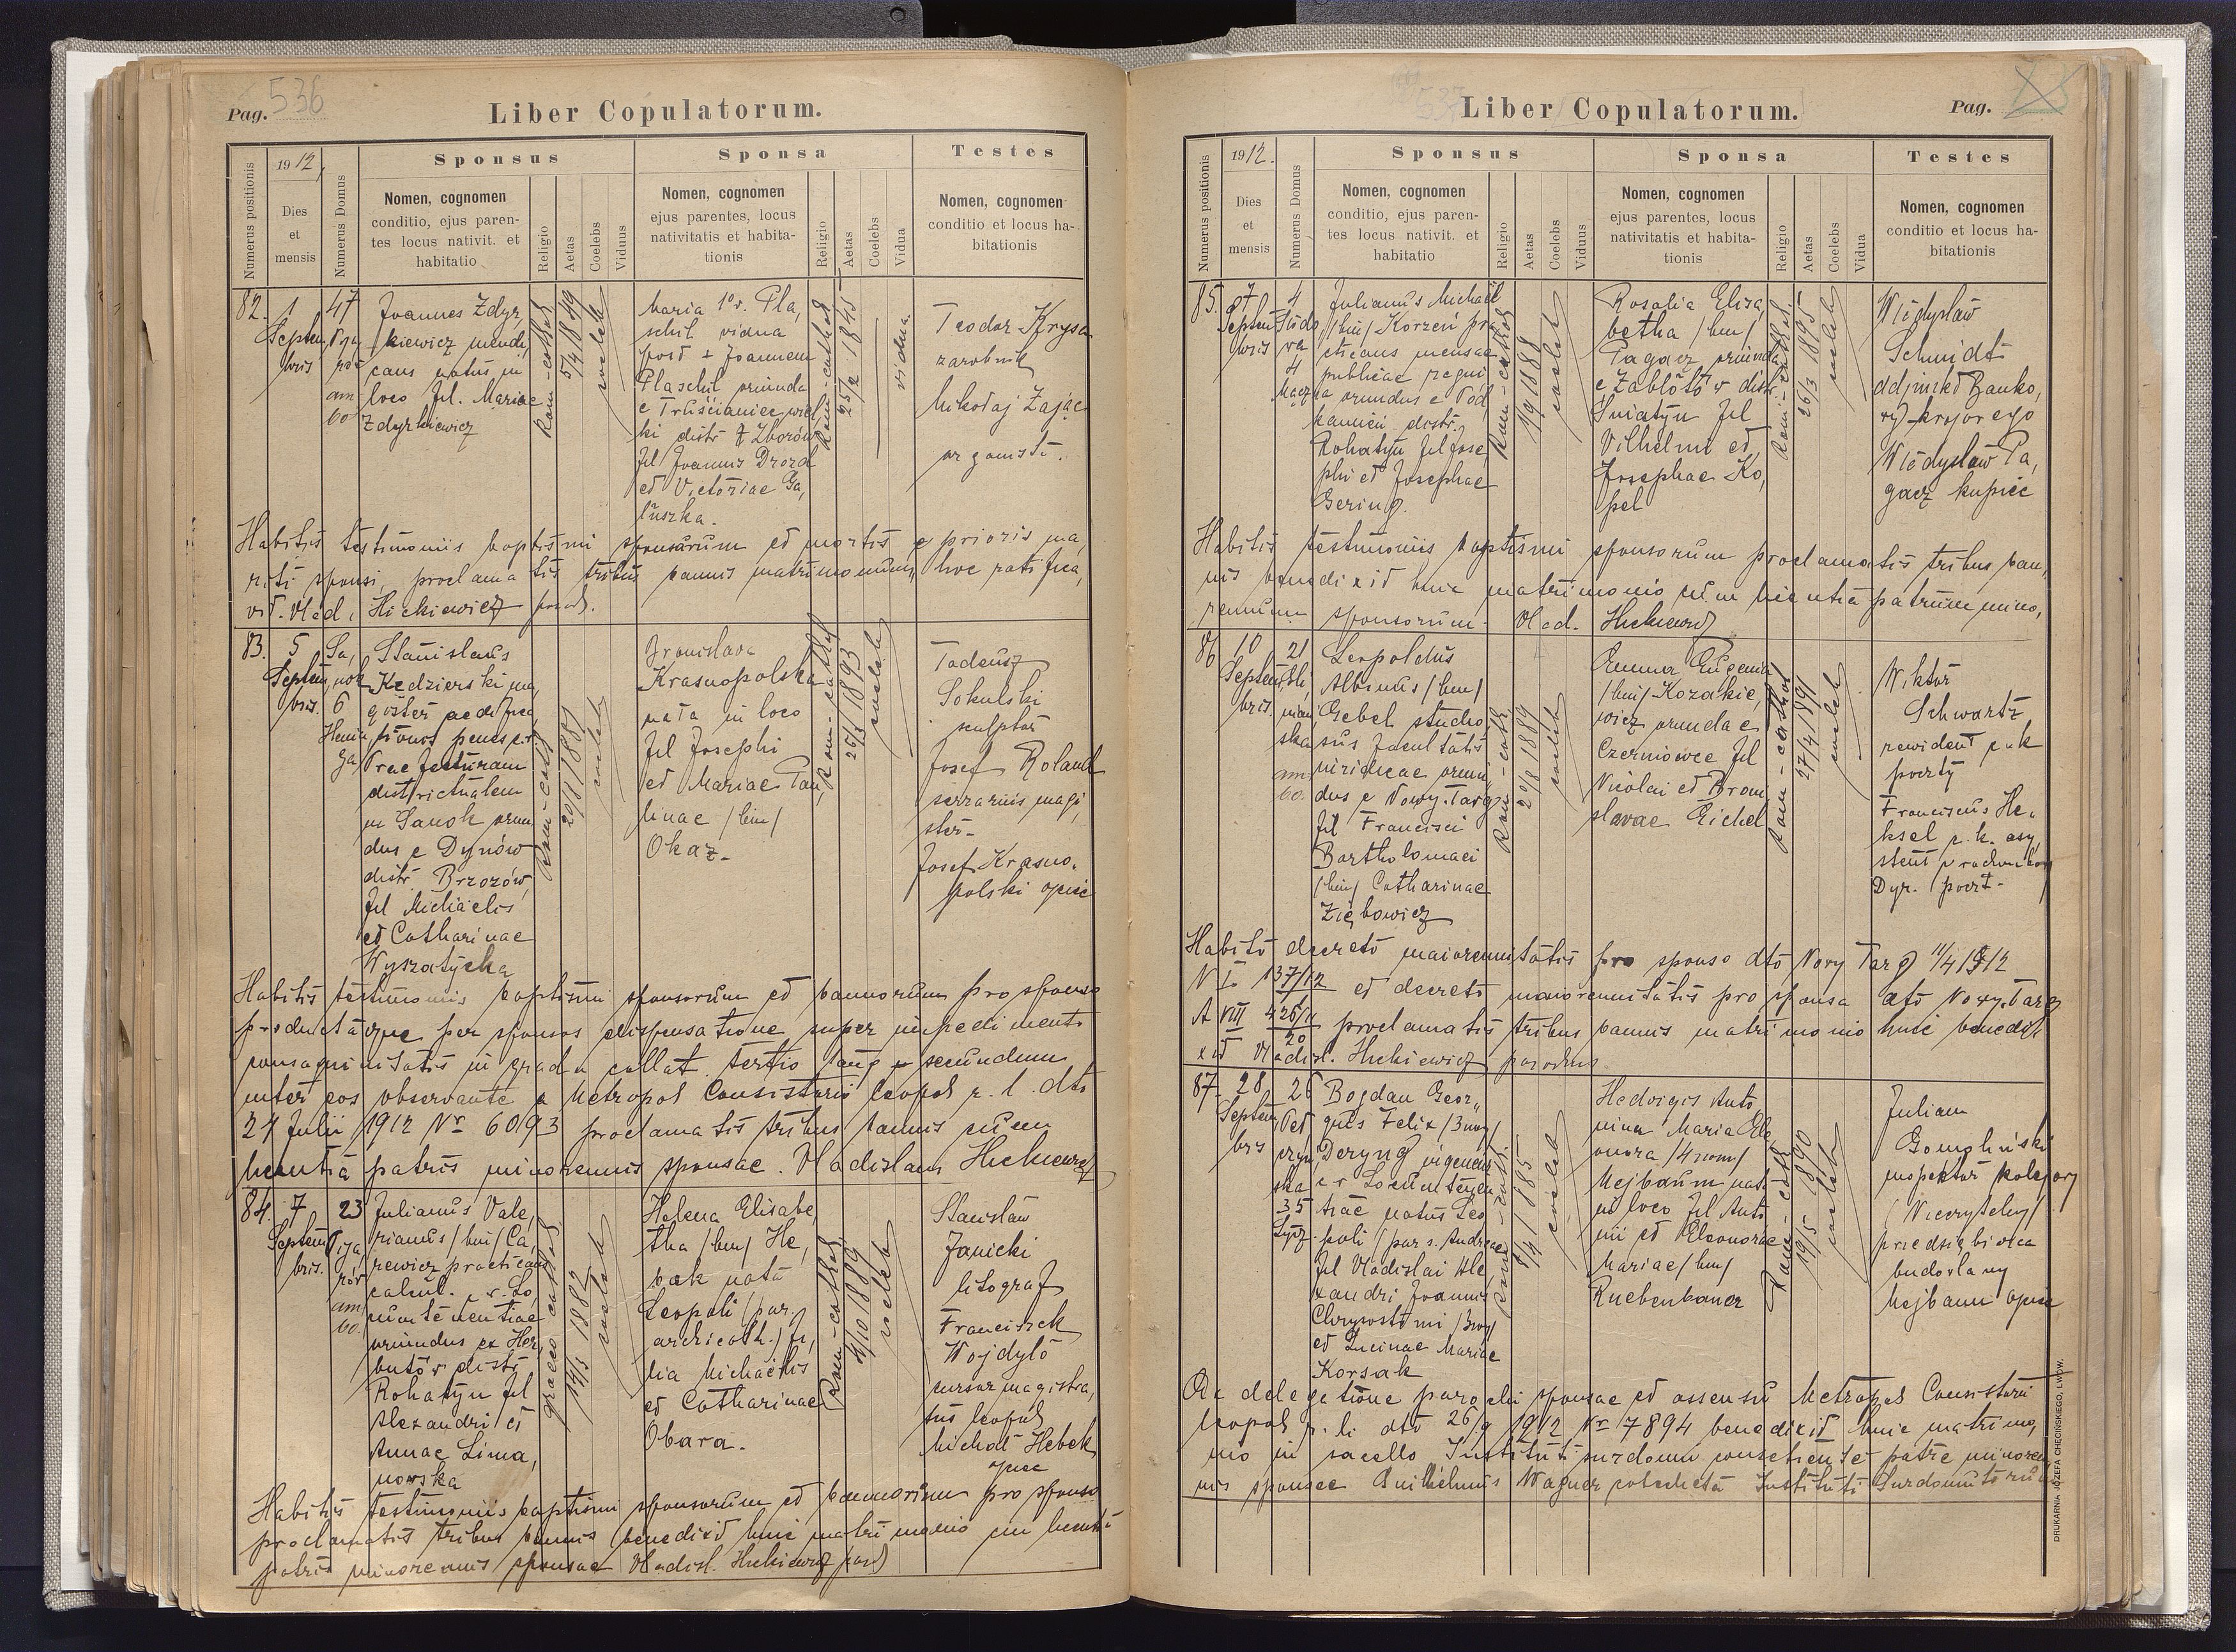 Pag. 536
Liber Copulatorum.
Numerus positionis
1912
Dies
et
mensis
Numerus Domus
Sponsus
Nomen, cognomen
conditio, ejus paren-
tes locus nativit. et
habitatio
Religio
Aetas
Coelebs
Viduus
Sponsa
Nomen, cognomen
ejus parentes, locus
nativitatis et habita-
tionis
Religio
Aetas
Coelebs
Vidua
Testes
Nomen, cognomen
conditio et locus ha-
bitationis
82.
1
Septem
bris
47
am
bo
Joannes Zdyr,
kiewicz mendi,
cans natus in
loco fil. Mariae
Zdyrkiewicz
Rom-cathol
5/4 1849
coeleb
Maria 1º v. Pla,
schil vidua
post + Joannem
Plaschil oriunda
e Truścianiec wiel
ki distr Zborów
fil Joannis Drozd
et Victoriae Ga,
łuszka.
Rom-cathol
25/2 1845
vidua
Teodor Krysa
zarobnik
Mikołaj Zając
organista.
Habitis testimoniis baptismi sponsorum et mortis prioris ma,
riti sponsi, proclamatis tribus bannis matrimonium hoc ratifica,
vit. Vlad. Hickiewicz
83.
5
Septem
bris.
Sa,
nok
6
Stanislaus
Kędzierski ma,
gister aedifica
tionis penes
Praefecturam
districtualem
in Sanok oriun
dus e Dynów
distr. Brzozów
fil Michaelis
et Catharinae
Wyszatycka
Rom-cath
1881
coeleb
Bronislava
Krasnopolska
nata in loco
fil Josephi
et Mariae Pau,
linae /bin/
Okaz-
Rom-cathol
1893
coeleb
Tadeusz
Sokulski
sculptor
Josef Roland
serrarius magi,
ster-
Josef Krasno,
polski ojciec
Habitis testimoniis baptismi sponsorum et bannorum pro sponso
productaque per sponsos dispensatione super impedimento
consaguinitatis in gradu collat. tertio tang. secundum
inter eos observante a Metropol Consistorio Leopol r. l. dto
27 Julii 1912 Nr 6093 proclamatis tribus bannis cum
licentia patris minorennis sponsae. Vladislaus Hickiewicz
84.
7
Septem
bris.
23
am
bo.
Julianus Vale,
rianus /bin/ Ca,
rewicz practicans
calcul. c. r. Lo,
cumtenentiae
oriundus ex Her,
butów distr
Rohatyn fil
Alexandri et
Annae Lima,
nowska
graeco cathol
1882
coeleb
Helena Elisabe,
tha /bin/ He,
bek nata
Leopoli /par.
archicath./ fi,
lia Michaelis
et Catharinae
Obara.
Rom-cathol
1889
coeleb
Stanisław
Janicki
litograf
Franciszek
Wojdyło
cursor magistra,
tus leopol
Michał Hebek
ojciec
Habitis testimoniis baptismi sponsorum et bannorum pro sponso
proclamatis tribus bannis benedixit huic matrimonio cum licentia
patris minorennis sponsae Vladisl. Hickiewicz
Liber Copulatorum.
Pag.
Numerus positionis
1912.
Dies
et
mensis
Numerus Domus
Sponsus
Nomen, cognomen
conditio, ejus paren-
tes locus nativit. et
habitatio
Religio
Aetas
Coelebs
Viduus
Sponsa
Nomen, cognomen
ejus parentes, locus
nativitatis et habita-
tionis
Religio
Aetas
Coelebs
Vidua
Testes
Nomen, cognomen
conditio et locus ha-
bitationis
85.
7
Septem
bris
4
4
Julianus Michael
/bin/ Korzeń pra
cticans mensae
publicae regni
oriundus e Pod,
kamień distr.
Rohatyn fil Jose,
phi et Josephae
Gering.
Rom-cathol
1/9 1888
coeleb
Rosalia Elisa,
betha /bin/
Pagacz oriunda
e Zabłotów distr.
Śniatyn fil
Vilhelmi et
Josephae Ko,
pel
Rom-cathol.
26/3 1895
coeleb
Władysław
Schmidt
adjunkt Banko,
krajowego
Władysław Pa,
gacz kupiec
Habitis testimoniis baptismi sponsorum proclamatis tribus ban,
nis benedixit huic matrimonio cum licentia patrum mino,
rennium sponsorum Vlad. Hickiewicz
86
10
Septem
bris.
21
am
bo.
Leopoldus
Albinus /bin/
Gebel studio
sus facultatis
juridicae oriun,
dus e Nowy-Targ
fil Francisci
Bartholomaei
/bin/ Catharinae
Ziębowicz
Rom-cath.
1889
coeleb
Emma Eugenia
/bin/ Kozakie,
wicz oriunda e
Czerniowce fil
Nicolai et Broni
slavae Eichel
Rom-cathol
27/4 1891
coeleb
Wiktor
Schwartz
rewident c k
poczty
Franciscus He,
ksel c. k. asy,
stent
Dyr. poczt-
Habito decreto maiorennitatis pro sponso dto Nowy Targ 11/4 1912
N I 137/12 et decreto maiorennitatis pro sponsa dto Nowy-Targ
A VIII proclamatis tribus bannis matrimonio huic bened
xit Vladisl. Hickiewicz parochus
87.
28
Septem
bris
26
35
Bogdan Geor,
gius Felix /3 nom/
Deryng ingenieur
c r Locumtenen
tiae natus Leo
poli /par s. Andreae
fil Vladislai Ale
xandri Joannis
Chrysostomi /3 nom/
et Lucinae Mariae
Korsak
1885
coeleb
Hedvigis Anto
nina Maria Ele
onora /4 nom/
Mejbaum nat
in loco fil Anto
nii et Eleonorae
Mariae /bin/
Ruebenbauer
Rom-cath
19/5 1890
coeleb
Julian
Gomoliński
inspektor kolejowy
przedsiębiorca
budowlany
Mejbaum ojciec
Ex delegatione parochi sponsae et assensu Metropol Consistorii
leopol r. l. dto 26/9 1912 Nr 7894 benedixit huic matrimo,
nio in sacello Instituti surdomu consentiente patre minoren
nis sponsae Guilhelmus Wagner catecheta Instituti Surdomutorum
DRUKARNIA JÓZEFA CHĘCIŃSKIEGO, LWÓW.